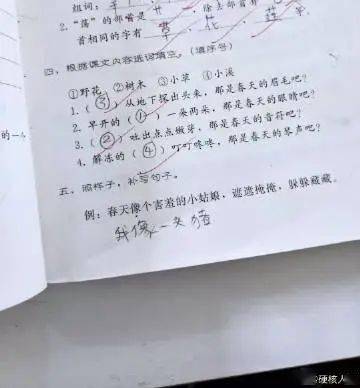 组词:
2. "荡"的部首是 艹 除去部首
首相同的字有 草、花、
四、根据课文内容选词填空。(填序号)
①野花 ②树木 ③小草 ④小溪
1. ( ③ )从地下探出头来,那是春天的眉毛吧?
2. 早开的( ① )一朵两朵,那是春天的眼睛吧?
3. ( ② )吐出点点嫩芽,那是春天的音符吧?
4. 解冻的( ④ )叮叮咚咚,那是春天的琴声吧?
的一
五、照样子,补写句子。
例:春天像个害羞的小姑娘,遮遮掩掩,躲躲藏藏。
我像一头猪
硬核人